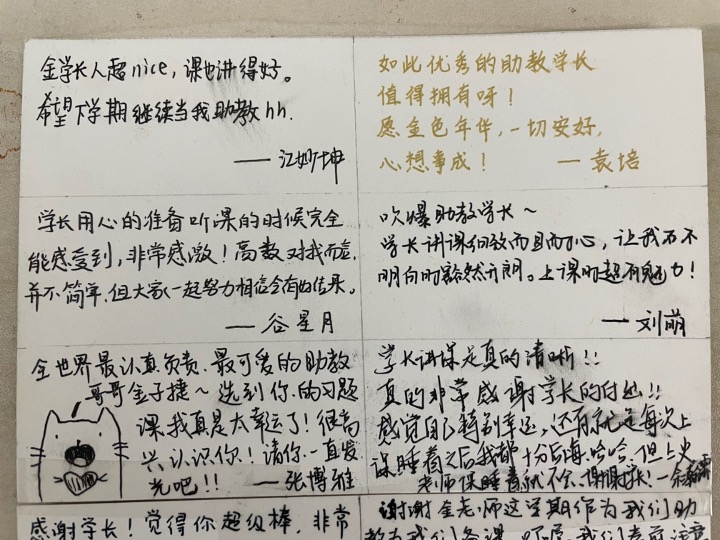 金学长人超nice，课也讲得好。
希望下学期继续当我助教hh.
——江妙坤
如此优秀的助教学长
值得拥有呀！
愿金色年华，一切安好，
心想事成！ ——袁培
学长用心的准备听课的时候完全
能感受到，非常感激！高数对我而言，
并不简单，但大家一起努力相信会有好结果。
——谷星月
吹爆助教学长～
学长讲课细致而且耐心，让我不
明白的豁然开朗。上课时超有魅力！
——刘萌
全世界最认真负责、最可爱的助教
哥哥金子捷～选到你的习题
课我真是太幸运了！很高
兴认识你！请你一直发
光吧！！ ——张博雅
学长讲课是真的清晰！！
真的非常感谢学长的付出！！
感觉自己特别幸运，还有就是每次上
课睡着之后我都十分后悔哈哈，但上史
老师课睡着就不会，谢谢学长！—余
感谢学长！觉得你超级棒，非常
谢谢金老师这学期作为我们助
教为我们备课